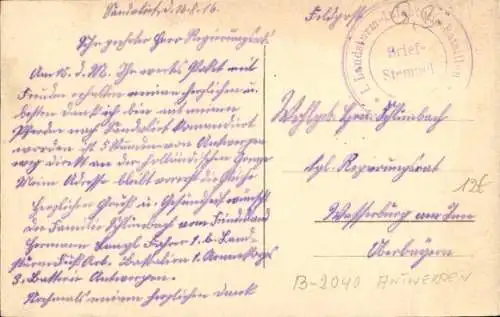 Sandvliet, d. 16.2.16.
Sehr geehrter Herr Regierungsrat.
Am d. M. Ihr wertes Paket mit
Freuden erhalten meinen herzlichen u.
besten Dank ich bin mit meinen
Pferden nach Sandvliet kommandiert
worden ist 5 Stunden von Antwerpen
weg direkt an der holländischen Grenze
Mein Adresse bleibt noch die Gleiche
Herzlichen Gruß u. Gesundheit wünscht
der Familie Schlimbach vom Feindesland
Hermann Langl Fahrer 1. b. Land-
sturm Battallion 1. Armeekorps
3. Batterie Antwerpen.
Nochmals meinen herzlichen Dank
Feldpost
Landsturm-
Brief-
Stempel
Wohlgeb. Herrn Schlimbach
kgl. Regierungsrat
Wasserburg am Inn
Oberbayern
B-2040 ANTWERPEN